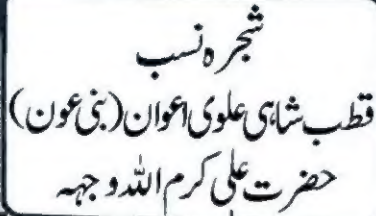 شجرہ نسب
قطب شاہی علوی اعوان (بنی عون)
حضرت علی کرم اللہ وجہہ